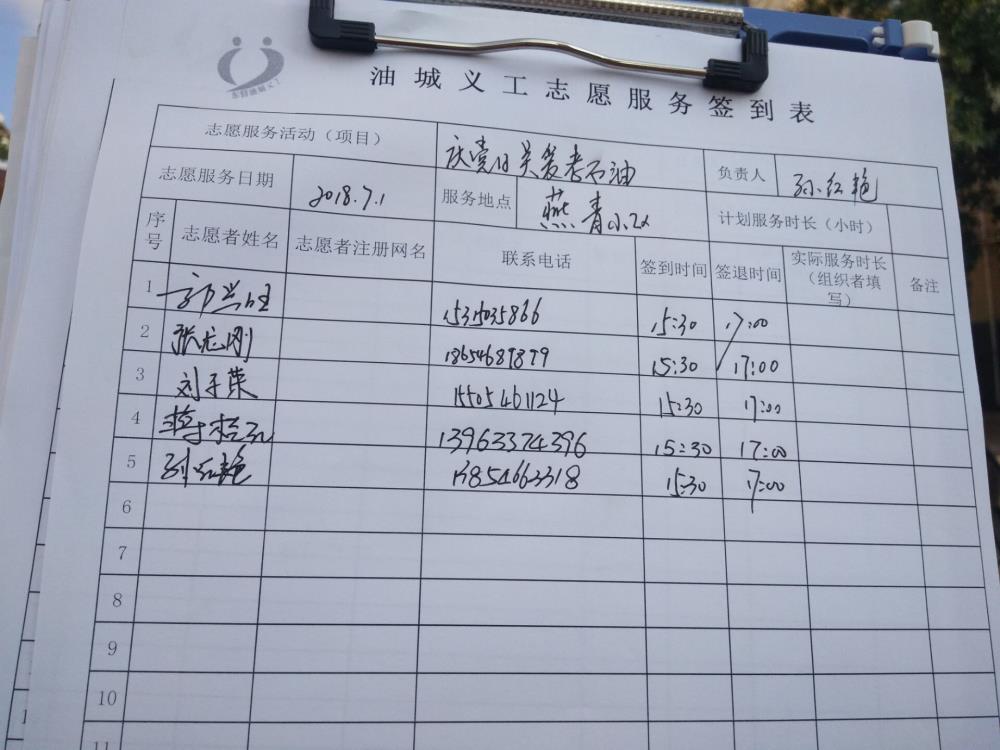 油城义工志愿服务签到表
志愿服务活动（项目） 庆党日关爱老石油 负责人 孙红艳
志愿服务日期 2018.7.1 服务地点 燕青小区 计划服务时长（小时）
序号 志愿者姓名 志愿者注册网名 联系电话 签到时间 签退时间 实际服务时长（组织者填写） 备注
1 15:30 17:00
2 张龙刚 18654689879 15:30 17:00
3 刘子荣 15505461124 15:30 17:00
4 13963374396 15:30 17:00
5 孙红艳 13854663318 15:30 17:00
6
7
8
9
10
11